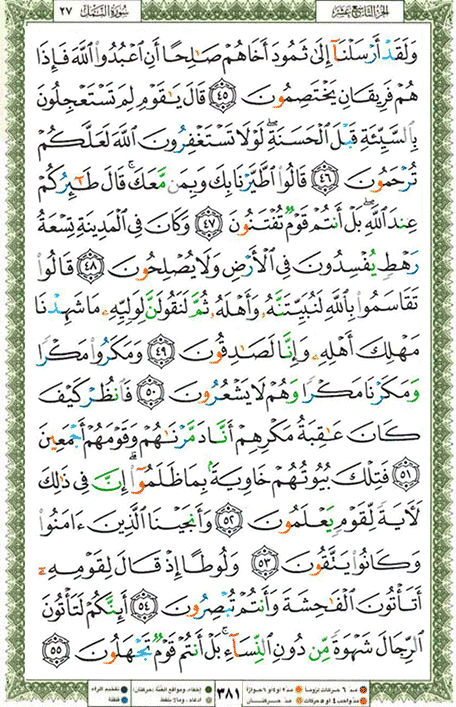 الجزء التاسع عشر
سورة النمل
٢٧
وَلَقَدْ أَرْسَلْنَآ إِلَىٰ ثَمُودَ أَخَاهُمْ صَـٰلِحًا أَنِ ٱعْبُدُوا۟ ٱللَّهَ فَإِذَا
هُمْ فَرِيقَانِ يَخْتَصِمُونَ ٤٥ قَالَ يَـٰقَوْمِ لِمَ تَسْتَعْجِلُونَ
بِٱلسَّيِّئَةِ قَبْلَ ٱلْحَسَنَةِ ۖ لَوْلَا تَسْتَغْفِرُونَ ٱللَّهَ لَعَلَّكُمْ
تُرْحَمُونَ ٤٦ قَالُوا۟ ٱطَّيَّرْنَا بِكَ وَبِمَن مَّعَكَ ۚ قَالَ طَـٰٓئِرُكُمْ
عِندَ ٱللَّهِ ۖ بَلْ أَنتُمْ قَوْمٌ تُفْتَنُونَ ٤٧ وَكَانَ فِى ٱلْمَدِينَةِ تِسْعَةُ
رَهْطٍ يُفْسِدُونَ فِى ٱلْأَرْضِ وَلَا يُصْلِحُونَ ٤٨ قَالُوا۟
تَقَاسَمُوا۟ بِٱللَّهِ لَنُبَيِّتَنَّهُۥ وَأَهْلَهُۥ ثُمَّ لَنَقُولَنَّ لِوَلِيِّهِۦ مَا شَهِدْنَا
مَهْلِكَ أَهْلِهِۦ وَإِنَّا لَصَـٰدِقُونَ ٤٩ وَمَكَرُوا۟ مَكْرًا
وَمَكَرْنَا مَكْرًا وَهُمْ لَا يَشْعُرُونَ ٥٠ فَٱنظُرْ كَيْفَ
كَانَ عَـٰقِبَةُ مَكْرِهِمْ أَنَّا دَمَّرْنَـٰهُمْ وَقَوْمَهُمْ أَجْمَعِينَ
٥١ فَتِلْكَ بُيُوتُهُمْ خَاوِيَةًۢ بِمَا ظَلَمُوٓا۟ ۗ إِنَّ فِى ذَٰلِكَ
لَـَٔايَةً لِّقَوْمٍ يَعْلَمُونَ ٥٢ وَأَنجَيْنَا ٱلَّذِينَ ءَامَنُوا۟
وَكَانُوا۟ يَتَّقُونَ ٥٣ وَلُوطًا إِذْ قَالَ لِقَوْمِهِۦٓ
أَتَأْتُونَ ٱلْفَـٰحِشَةَ وَأَنتُمْ تُبْصِرُونَ ٥٤ أَئِنَّكُمْ لَتَأْتُونَ
ٱلرِّجَالَ شَهْوَةً مِّن دُونِ ٱلنِّسَآءِ ۚ بَلْ أَنتُمْ قَوْمٌ تَجْهَلُونَ ٥٥
مد ٦ حركات لزوما
مد ٢ أو ٤ أو ٦ جوازا
مد واجب ٤ أو ٥ حركات
مد حركتان
٣٨١
إخفاء، ومواقع الغنة (حركتان)
إدغام، وما لا يلفظ
تفخيم الراء
قلقلة